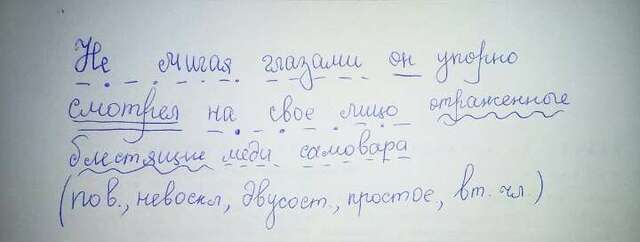 Не мигая глазами он упорно
смотрел на свое лицо отраженные
блестящие меди самовара
(пов., невоскл, двусост., простое, вт. чл.)